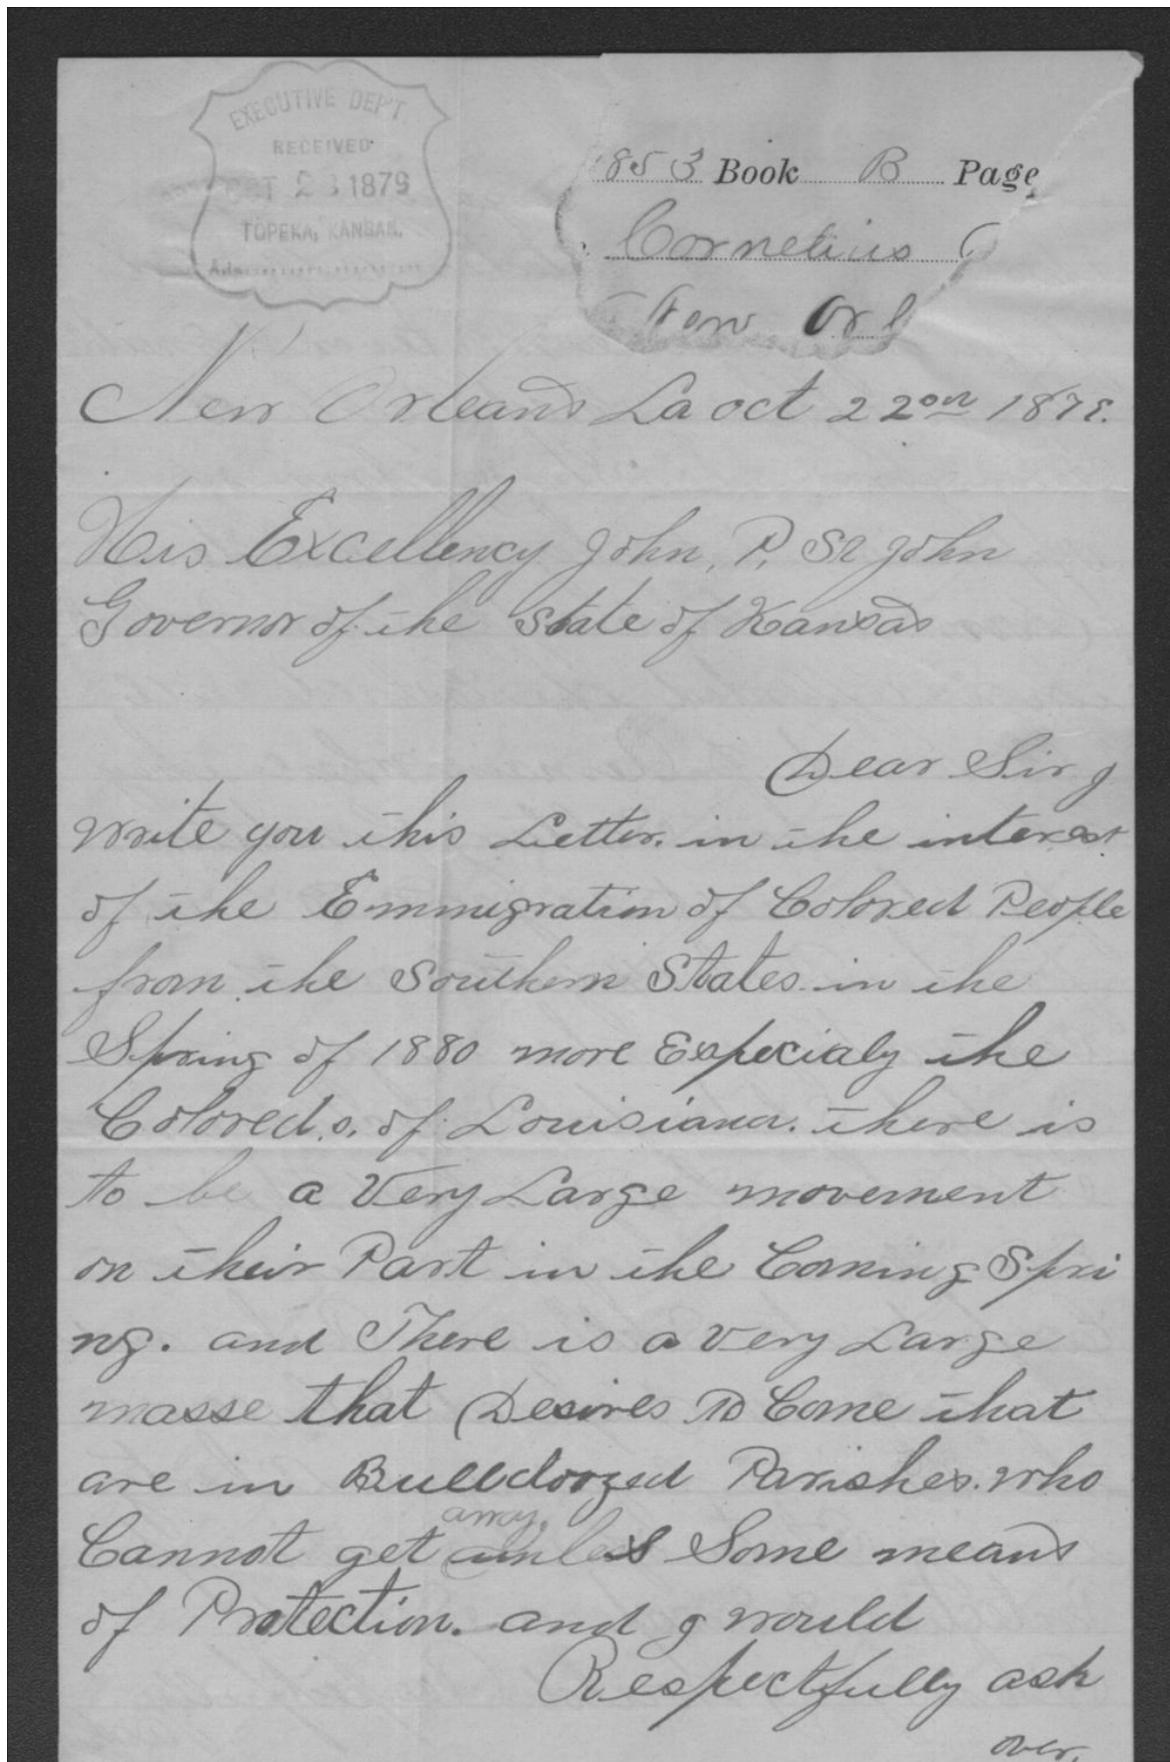 EXECUTIVE DEP'T.
RECEIVED
OCT 23 1879
TOPEKA, KANSAS.
1853 Book B Page
Cornelius
New Orl
New Orleans La oct 22on 1879.
His Excellency John, P. St John
Governor of the State of Kansas
Dear Sir I
write you this Letter. in the interest
of the Emmigration of Colored People
from the Southern States in the
Spring of 1880 more Especialy the
Colored.s. of Louisiana. there is
to be a Very Large movement
on their Part in the Coming Spri
ng. and There is a very Large
masse that Desires to Come that
are in Bulldoozed Parishes. who
away.
Cannot get unless Some means
of Protection. and I would
Respectfully ask
over.